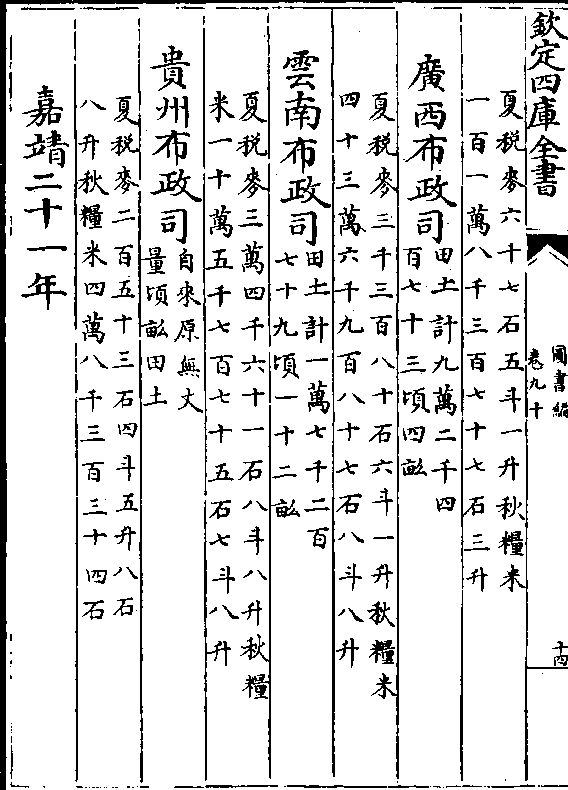 欽定四庫全書
圖書編
卷九十
十四
夏税麥六十七石五斗一升秋糧米
一百一萬八千三百七十七石三升
廣西布政司
田土計九萬二千四
百七十三頃四畝
夏税麥三千三百八十石六斗一升秋糧米
四十三萬六千九百八十七石八斗八升
雲南布政司
田土計一萬七千二百
七十九頃一十二畝
夏税麥三萬四千六十一石八斗八升秋糧
米一十萬五千七百七十五石七斗八升
貴州布政司
自來原無丈
量頃畝田土
夏税麥二百五十三石四斗五升八石
八升秋糧米四萬八千三百三十四石
嘉靖二十一年